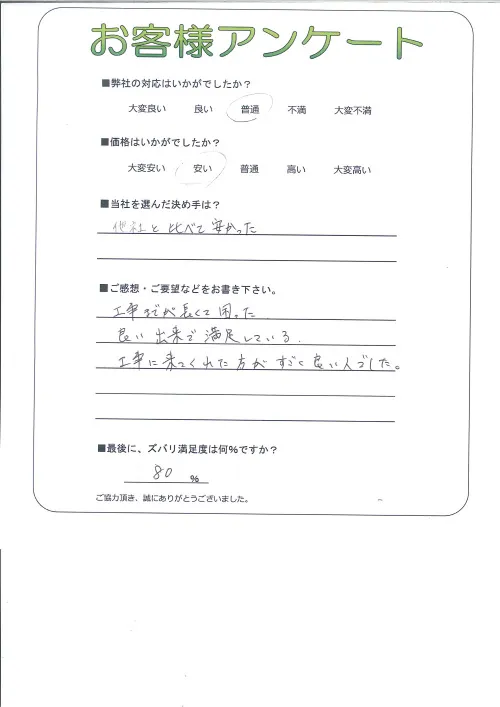 お客様アンケート
■弊社の対応はいかがでしたか？
大変良い 良い 普通 不満 大変不満
■価格はいかがでしたか？
大変安い 安い 普通 高い 大変高い
■当社を選んだ決め手は？
他社と比べて安かった
■ご感想・ご要望などをお書き下さい。
工事までが長くて困った.
良い出来で満足している.
工事に来てくれた方がすごく良い人でした。
■最後に、ズバリ満足度は何%ですか？
80 %
ご協力頂き、誠にありがとうございました。